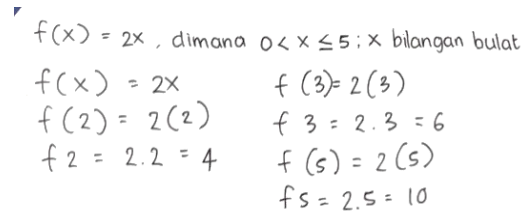 f(x) = 2x , dimana 0 < x ≤ 5 ; x bilangan bulat
f(x) = 2x
f(2) = 2(2)
f 2 = 2.2 = 4
f (3) = 2(3)
f 3 = 2.3 = 6
f (5) = 2(5)
f 5 = 2.5 = 10